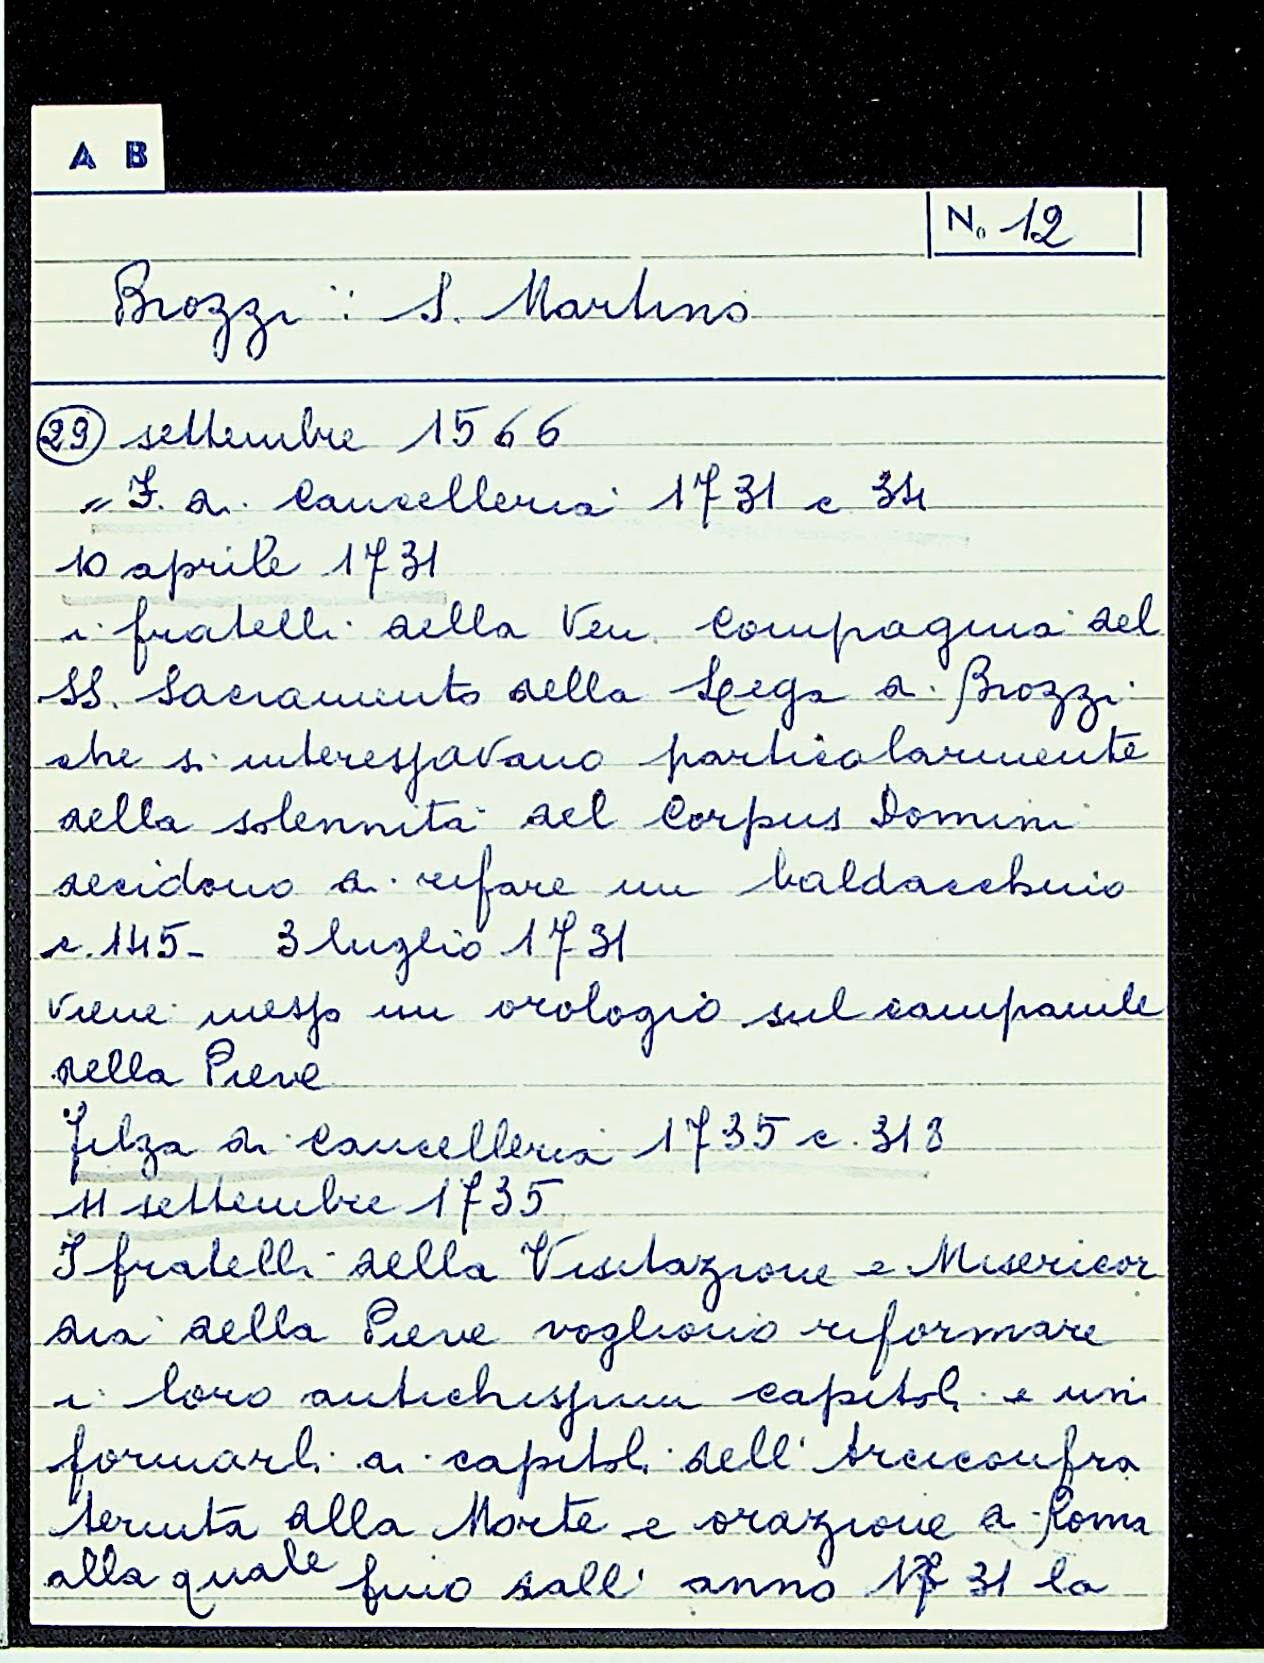 A B
N. 12
Brozzi: S. Martino
29 settembre 1566
" F. di Cancelleria 1731 c 34
10 aprile 1731
i fratelli della Ven. Compagnia del
SS. Sacramento della Lega a Brozzi
che si interessavano particolarmente
della solennità del Corpus Domini
decidono di rifare un baldacchino
c. 145 - 3 luglio 1731
viene messo un orologio sul campanile
della Pieve
Filza di Cancelleria 1735 c. 313
11 settembre 1735
I fratelli della Visitazione e Misericor
dia della Pieve vogliono riformare
i loro antichissimi capitoli e uni
formarli ai capitoli dell'Arciconfra
ternita alla Morte e orazione a Roma
alla quale fino dall'anno 1731 la